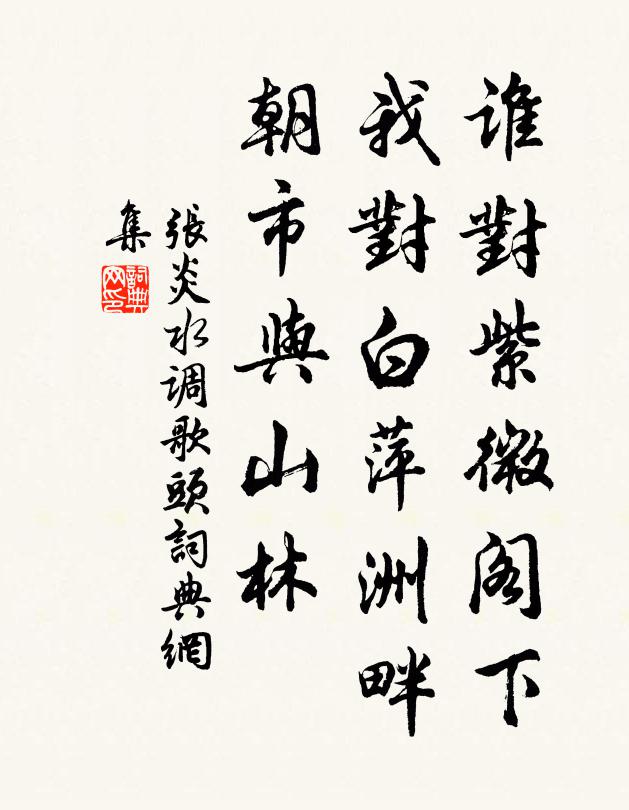 誰對紫微阁下
我對白萍洲畔
朝市與山林
張炎水调歌頭詞典網
集
詞典网印